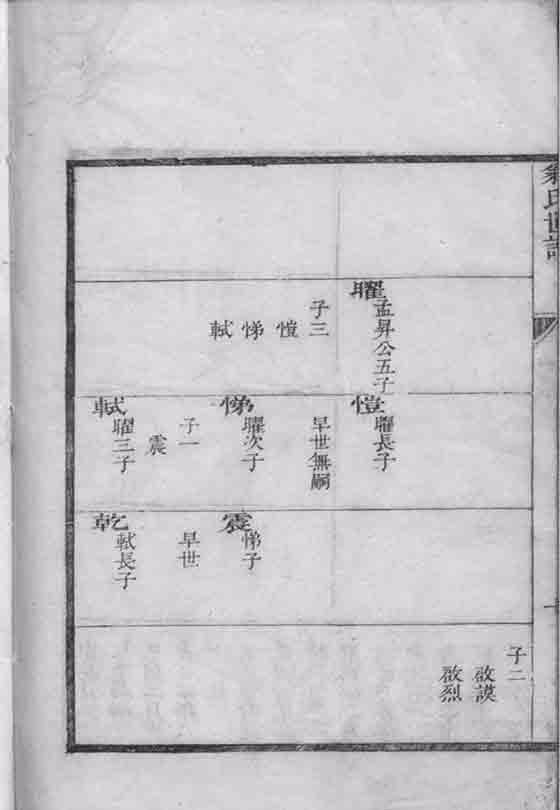 氏世譜
曜 孟昇公五子
子三
愷
悌
軾
愷 曜長子
早世無嗣
悌 曜次子
子一
震
軾 曜三子
震 悌子
早世
乾 軾長子
子二
啟謨
啟烈